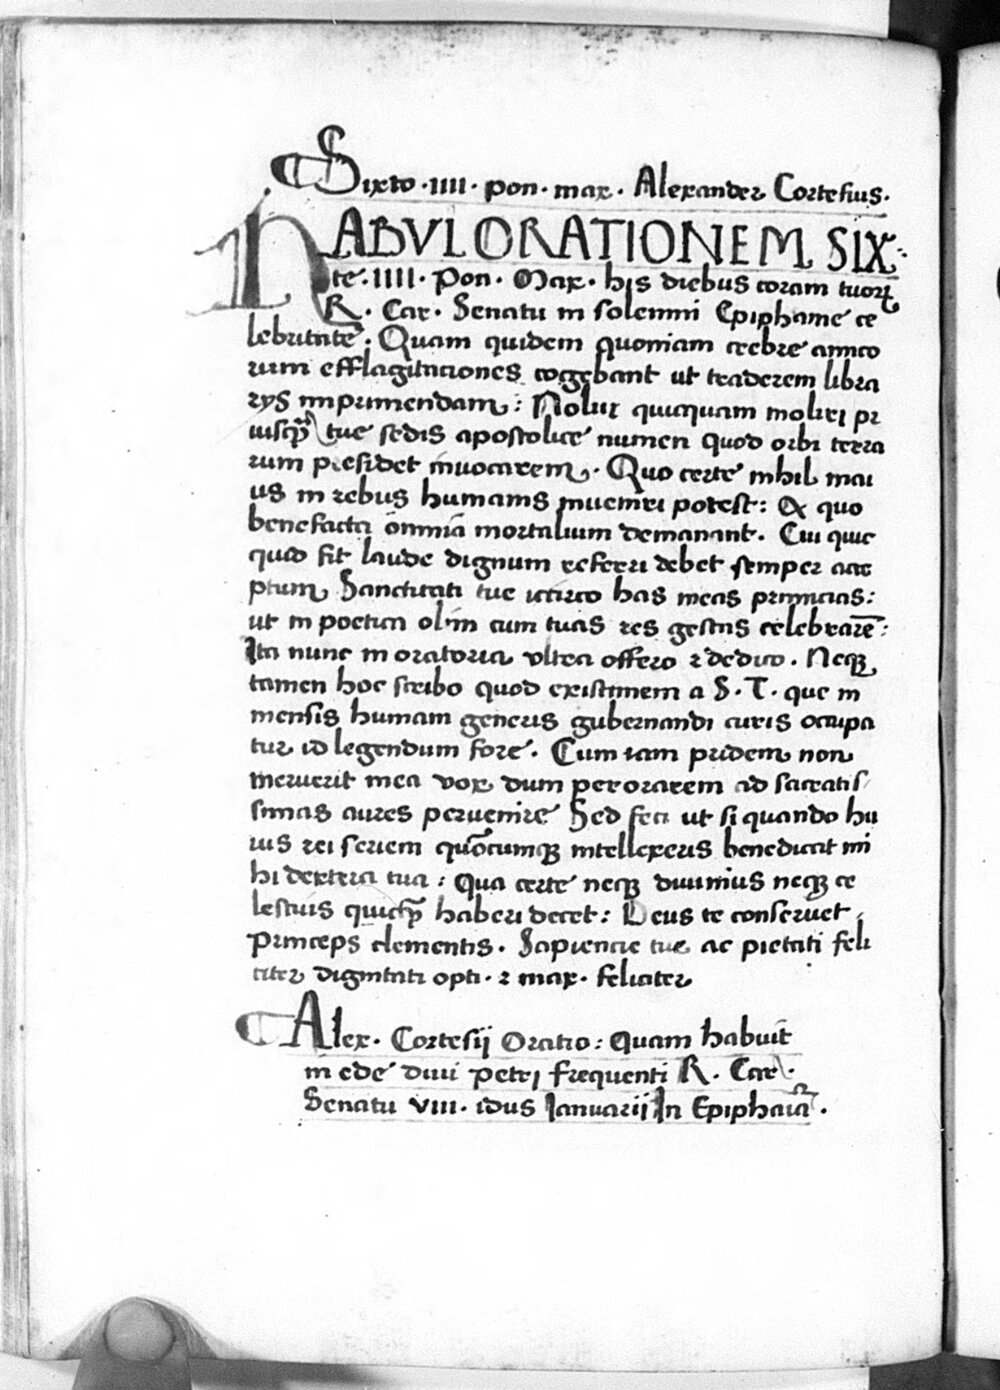 Sixto .IIII. pon. max. Alexander Cortesius.
HABVI ORATIONEM SIX
te .IIII. Pon. Max. his diebus coram tuorꝝ
R. Car. Senatu in solemni Epiphanie ce
lebritate. Quam quidem quoniam crebre amico
rum efflagitaciones cogebant ut traderem libra
rijs imprimendam: Nolui quicquam moliri pr
iusꝙ tue sedis apostolice numen quod orbi terra
rum presidet invocarem. Quo certe nihil mai
us in rebus humanis inveniri potest: Ex quo
benefacta omnia mortalium demanant. Cui quic
quid sit laude dignum referri debet semper acce
ptum. Sanctitati tue iccirco has meas primicias:
ut in poetica olim cum tuas res gestas celebrarē:
Ita nunc in oratoria ultra offero ⁊ dedico. Neqꝫ
tamen hoc scribo quod existimem a S. T. que in
mensis humani generis gubernandi curis occupa
tur id legendum fore. Cum iam pridem non
meruerit mea vox dum perorarem ad sacratis
simas aures pervenire Sed feci ut si quando hu
ius rei seriem quōcumqꝫ intellexeris benedicat mi
hi dextera tua: Qua certe neqꝫ divinius neqꝫ ce
lestius quicꝙ haberi decet: Deus te conservet
princeps clementis. Sapiencie tue ac pietati feli
citer dignitati opti. ⁊ max. feliciter
Alex. Cortesij Oratio: Quam habuit
in ede divi petri frequenti R. Car.
Senatu VIII. idus Ianuarij In Epiphaīa.